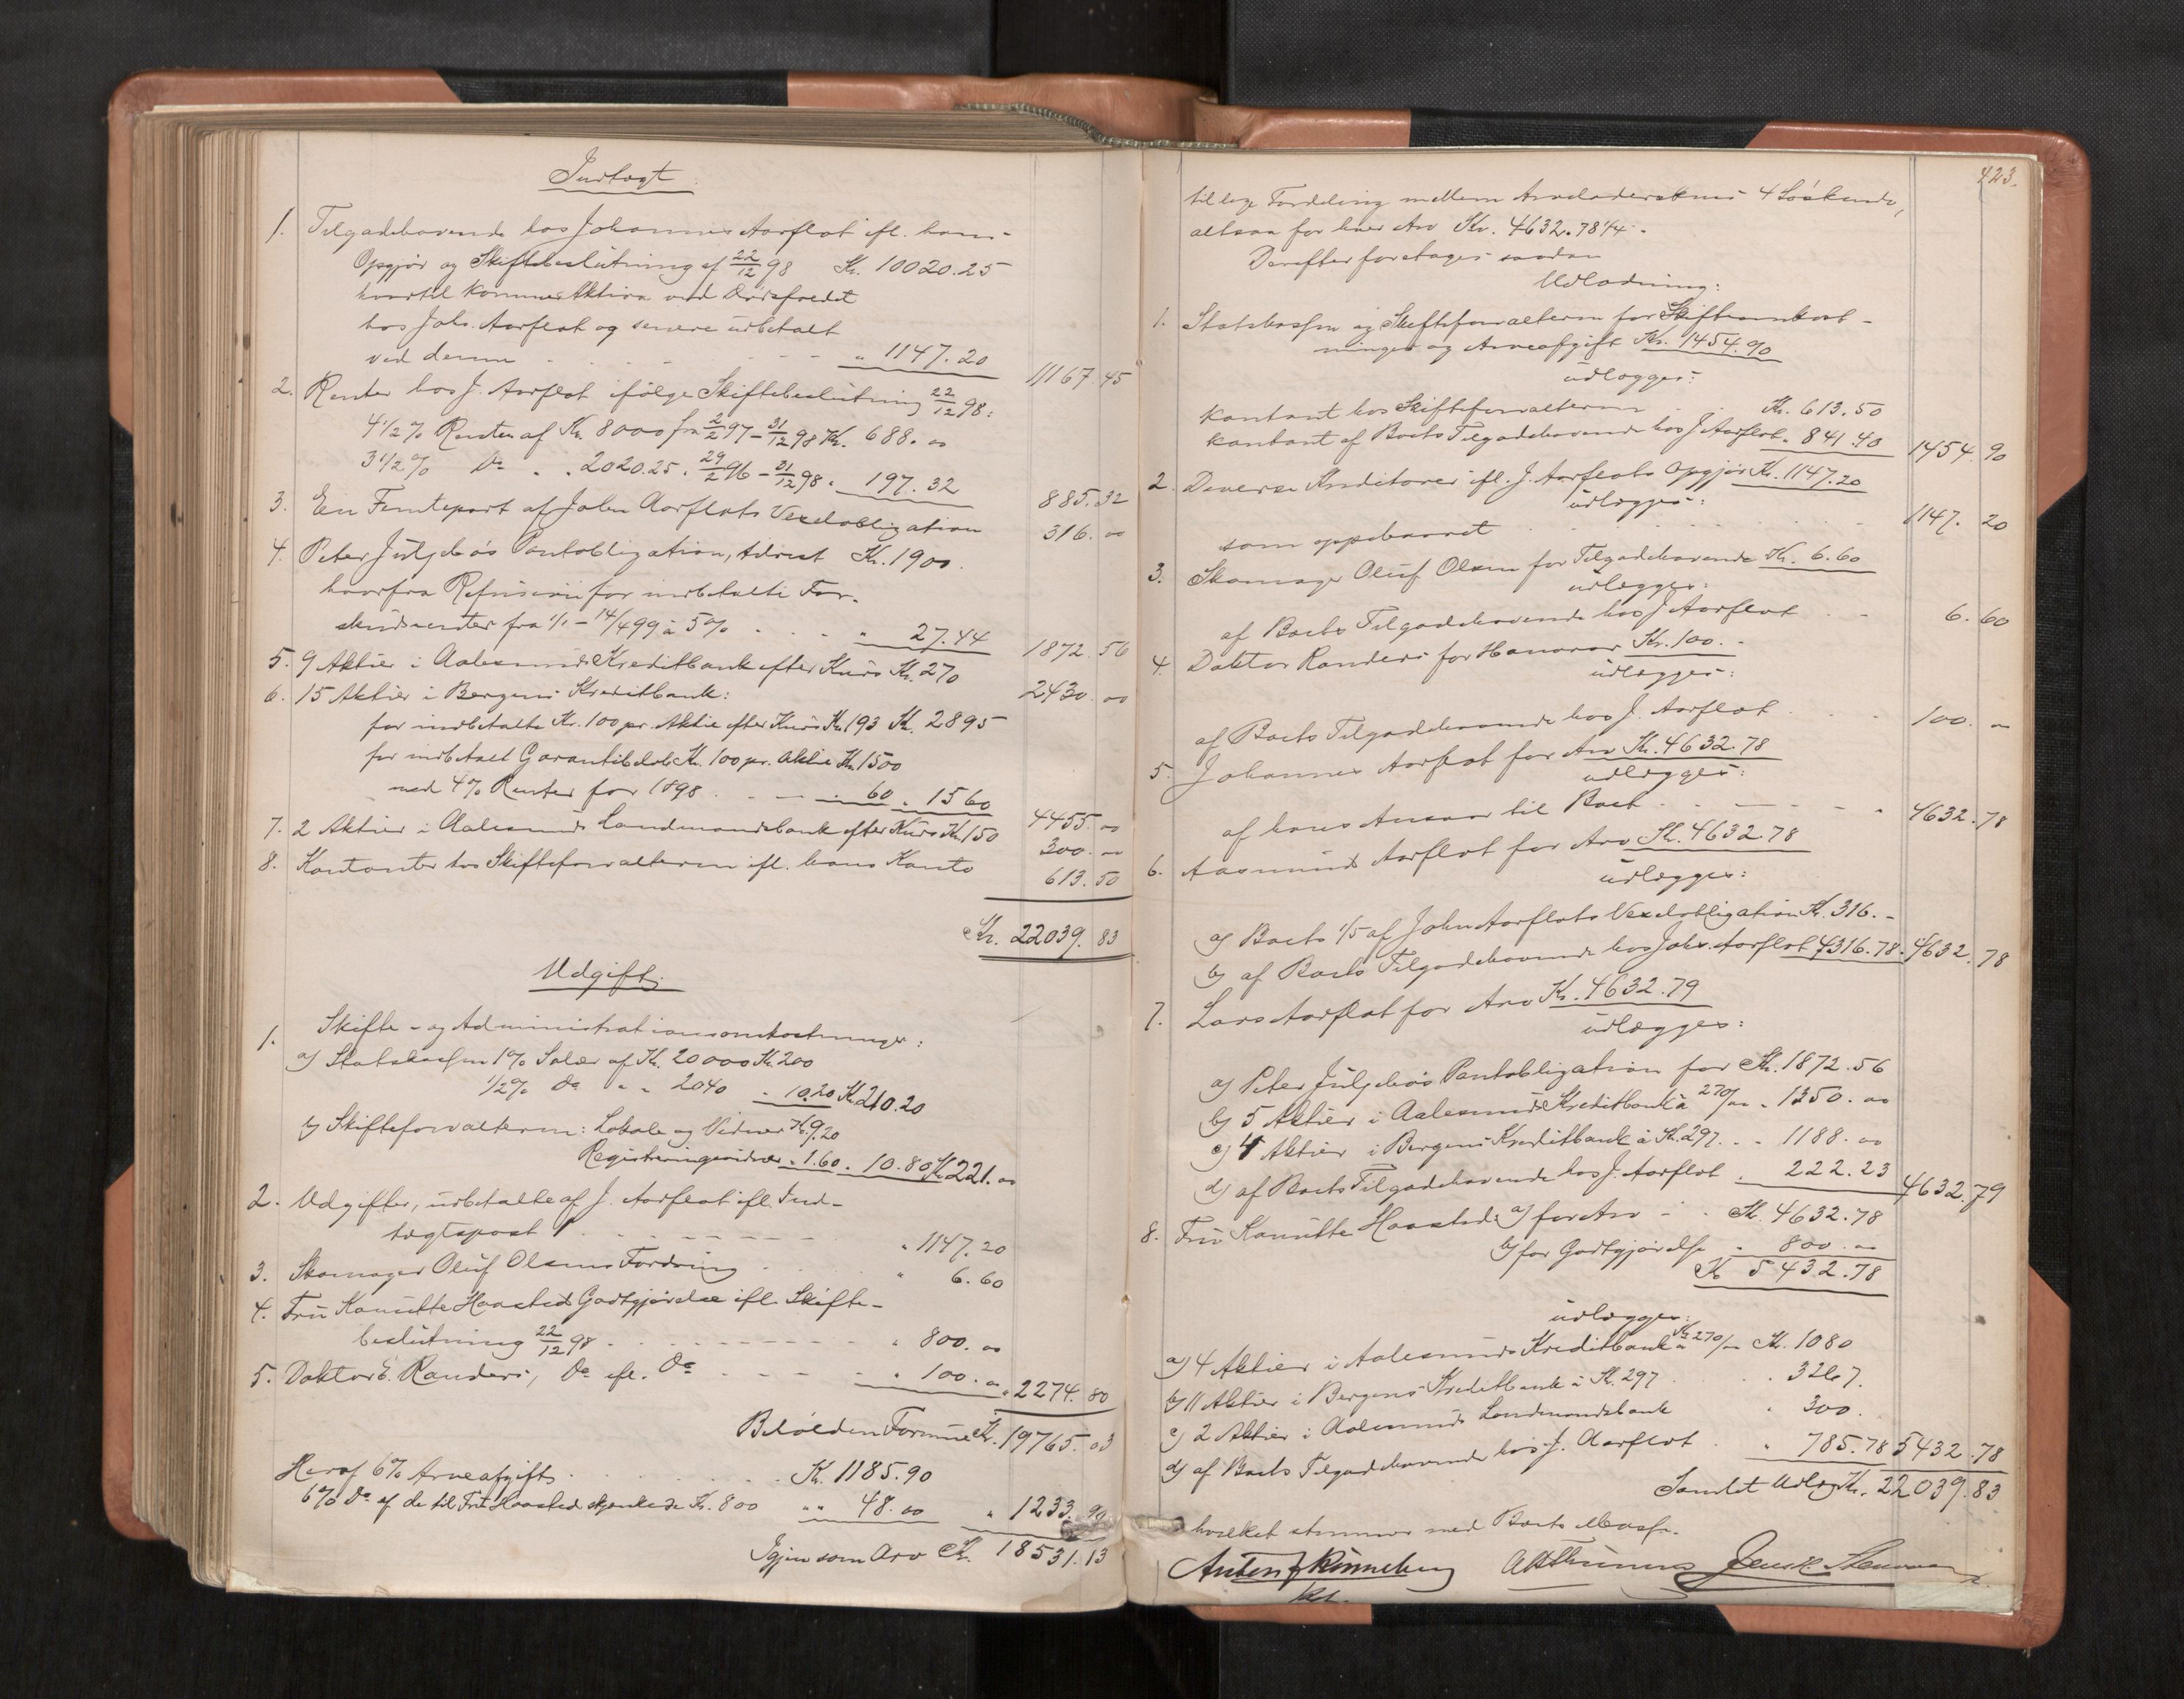 Indtægt:
1. Tilgodehavende hos Johannes Aarflot ifl. hans
Opgjør og Skiftebeslutning af 22/12 98 Kr. 10020.25
hvortil kommer Aktiva ved Dødsfaldet
hos Johs. Aarflot og senere udbetalt
ved denne - - - " 1147.20 11167.45
2. Renter hos J. Aarflot ifølge Skiftebeslutning 22/12 98:
4 1/2 % Renter af Kr. 8000 fra 2/2 97 - 31/12 98 Kr. 688.00
3 1/2 % Do " " 2020.25 " 29/2 96 - 31/12 98 " 197.32 885.32
3. En Femtepart af John Aarflots Vexelobligation 316.00
4. Peter Juljebøs Pantobligation, Adrest Kr. 1900.
hvorfra Refusion for indbetalte For-
skudsrenter fra 1/1 - 14/4 99 à 5 % . . . " 27.44 1872.56
5. 9 Aktier i Aalesunds Kreditbank efter Kurs Kr. 270 2430.00
6. 15 Aktier i Bergens Kreditbank:
for indbetalte Kr. 100 pr. Aktie efter Kurs Kr. 193 Kr. 2895
for indbetalt Garantibeløb Kr. 100 pr. Aktie Kr. 1500
med 4 % Renter for 1898 . - - " 60 " 1560 4455.00
7. 2 Aktier i Aalesunds Landmandsbank efter Kurs Kr. 150 300.00
8. Kontanter hos Skifteforvalteren ifl. hans Konto 613.50
Kr. 22039.83
Udgift:
1. Skifte- og Administrationsomkostninger:
a) Statskassen 1 % Salær af Kr. 20000 Kr. 200
1/2 % Do " " 2040 " 10.20 Kr. 210.20
b) Skifteforvalteren: Lokale og Vidner Kr. 9.20
Registreringsvidner " 1.60 " 10.80 Kr. 221.00
2. Udgifter, udbetalte af J. Aarflot ifl. Ind-
tægtspost 1 . - - - - - " 1147.20
3. Skomager Oluf Olsens Fordring . . . " 6.60
4. Fru Kanutte Haasteds Godtgjørelse ifl. Skifte-
beslutning 22/12 98 . - - - - - " 800.00
5. Doktor E. Randers, Do ifl. Do - - - - " 100.00 " 2274.80
Beholden Formue Kr. 19765.03
Heraf 6 % Arveafgift . . . . . Kr. 1185.90
6 % Do af de til Fru Haasted skjenkede Kr. 800 " " 48.00 " 1233.90
Igjen som Arv Kr. 18531.13
423.
til lige Fordeling mellem Arveladerskens 4 Søskende,
altsaa for hver Arv Kr. 4632.78 1/4.
Derefter foretages saadan
Udlodning:
1. Statskassen og Skifteforvalteren for Skifteomkost-
ninger og Arveafgift Kr. 1454.90
udlægges:
kontant hos Skifteforvalteren . . Kr. 613.50
kontant af Boets Tilgodehavende hos J. Aarflot " 841.40 1454.90
2. Diverse Kreditorer ifl. J. Aarflots Opgjør Kr. 1147.20
udlægges:
som oppebaaret . . . . . 1147.20
3. Skomager Oluf Olsen for Tilgodehavende Kr. 6.60
udlægges:
af Boets Tilgodehavende hos J. Aarflot - - 6.60
4. Doktor Randers for Honorar Kr. 100.-
udlægges:
af Boets Tilgodehavende hos J. Aarflot . . . 100.00
5. Johannes Aarflot for Arv Kr. 4632.78
udlægges:
af hans Ansvar til Boet - - - - - 4632.78
6. Aasmund Aarflot for Arv Kr. 4632.78
udlægges:
a) Boets 1/5 af John Aarflots Vexelobligation Kr. 316.-
b) af Boets Tilgodehavende hos Johs. Aarflot 4316.78. 4632.78
7. Lars Aarflot for Arv Kr. 4632.79
udlægges:
a) Peter Juljebøs Pantobligation for Kr. 1872.56
b) 5 Aktier i Aalesunds Kreditbank à 270/00 " 1350.00
c) 4 Aktier i Bergens Kreditbank à Kr. 297. . - 1188.00
d) af Boets Tilgodehavende hos J. Aarflot . 222.23 4632.79
8. Fru Kanutte Haasted: a) for Arv - . Kr. 4632.78
b) for Godtgjørelse " 800.00
Kr. 5432.78
udlægges:
a) 4 Aktier i Aalesunds Kreditbank à Kr. 270/00 Kr. 1080
b) 11 Aktier i Bergens Kreditbank à Kr. 297 . . 3267.
c) 2 Aktier i Aalesunds Landmandsbank " 300.
d) af Boets Tilgodehavende hos J. Aarflot . " 785.78 5432.78
Samlet Udlæg Kr. 22039.83
hvilket stemmer med Boets Masse.
Anton J Rønneberg